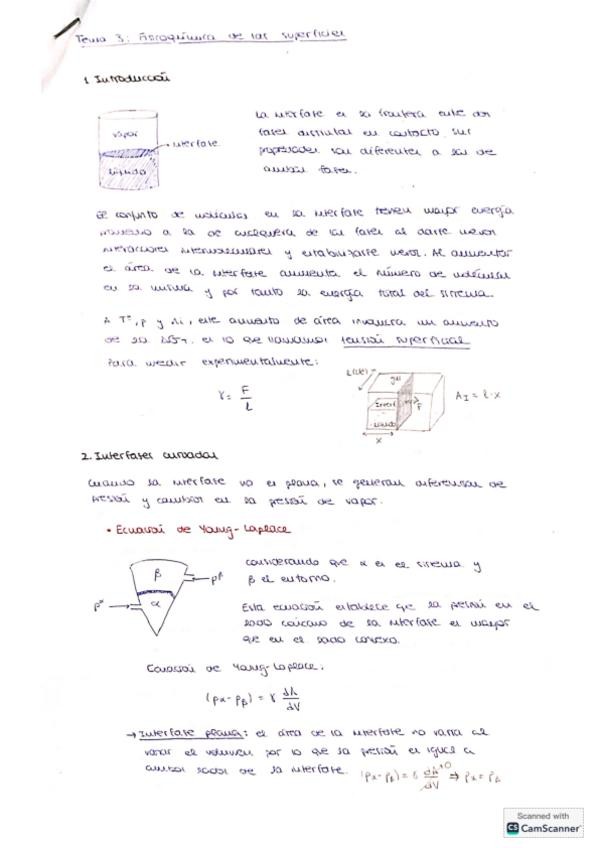 Tema 3: Fisicoquímica de las superficies
1. Introducción
La interfase es la frontera entre dos
fases distintas en contacto. Sus
propiedades son diferentes a las de
ambas fases.
vapor
interfase
líquido
El conjunto de moléculas en la interfase tienen mayor energía
a la de cualquiera de las fases al darse menos
interacciones intermoleculares y estabilizarse menos. Al aumentar
el área de la interfase aumenta el número de moléculas
en la misma y por tanto la energía total del sistema.
A Tª, p y ni, este aumento de área involucra un aumento
de la es lo que llamamos tensión superficial
Para medir experimentalmente:
γ = F/L
gas
líquido
F
x
A_I = l·x
2. Interfases curvadas
Cuando la interfase no es plana, se generan diferencias de
presión y cambios en la presión de vapor.
• Ecuación de Young-Laplace
considerando que α es el sistema y
β el entorno.
β
pβ
pα
α
Esta ecuación establece que la presión en el
lado cóncavo de la interfase es mayor
que en el lado convexo.
Ecuación de Young-Laplace:
(pα - pβ) = γ dA/dV
→ Interfase plana: el área de la interfase no varía al
variar el volumen por lo que la presión es igual a
ambos lados de la interfase. (pα - pβ) = γ dA/dV → 0 ⇒ pα = pβ
Scanned with
CS CamScanner